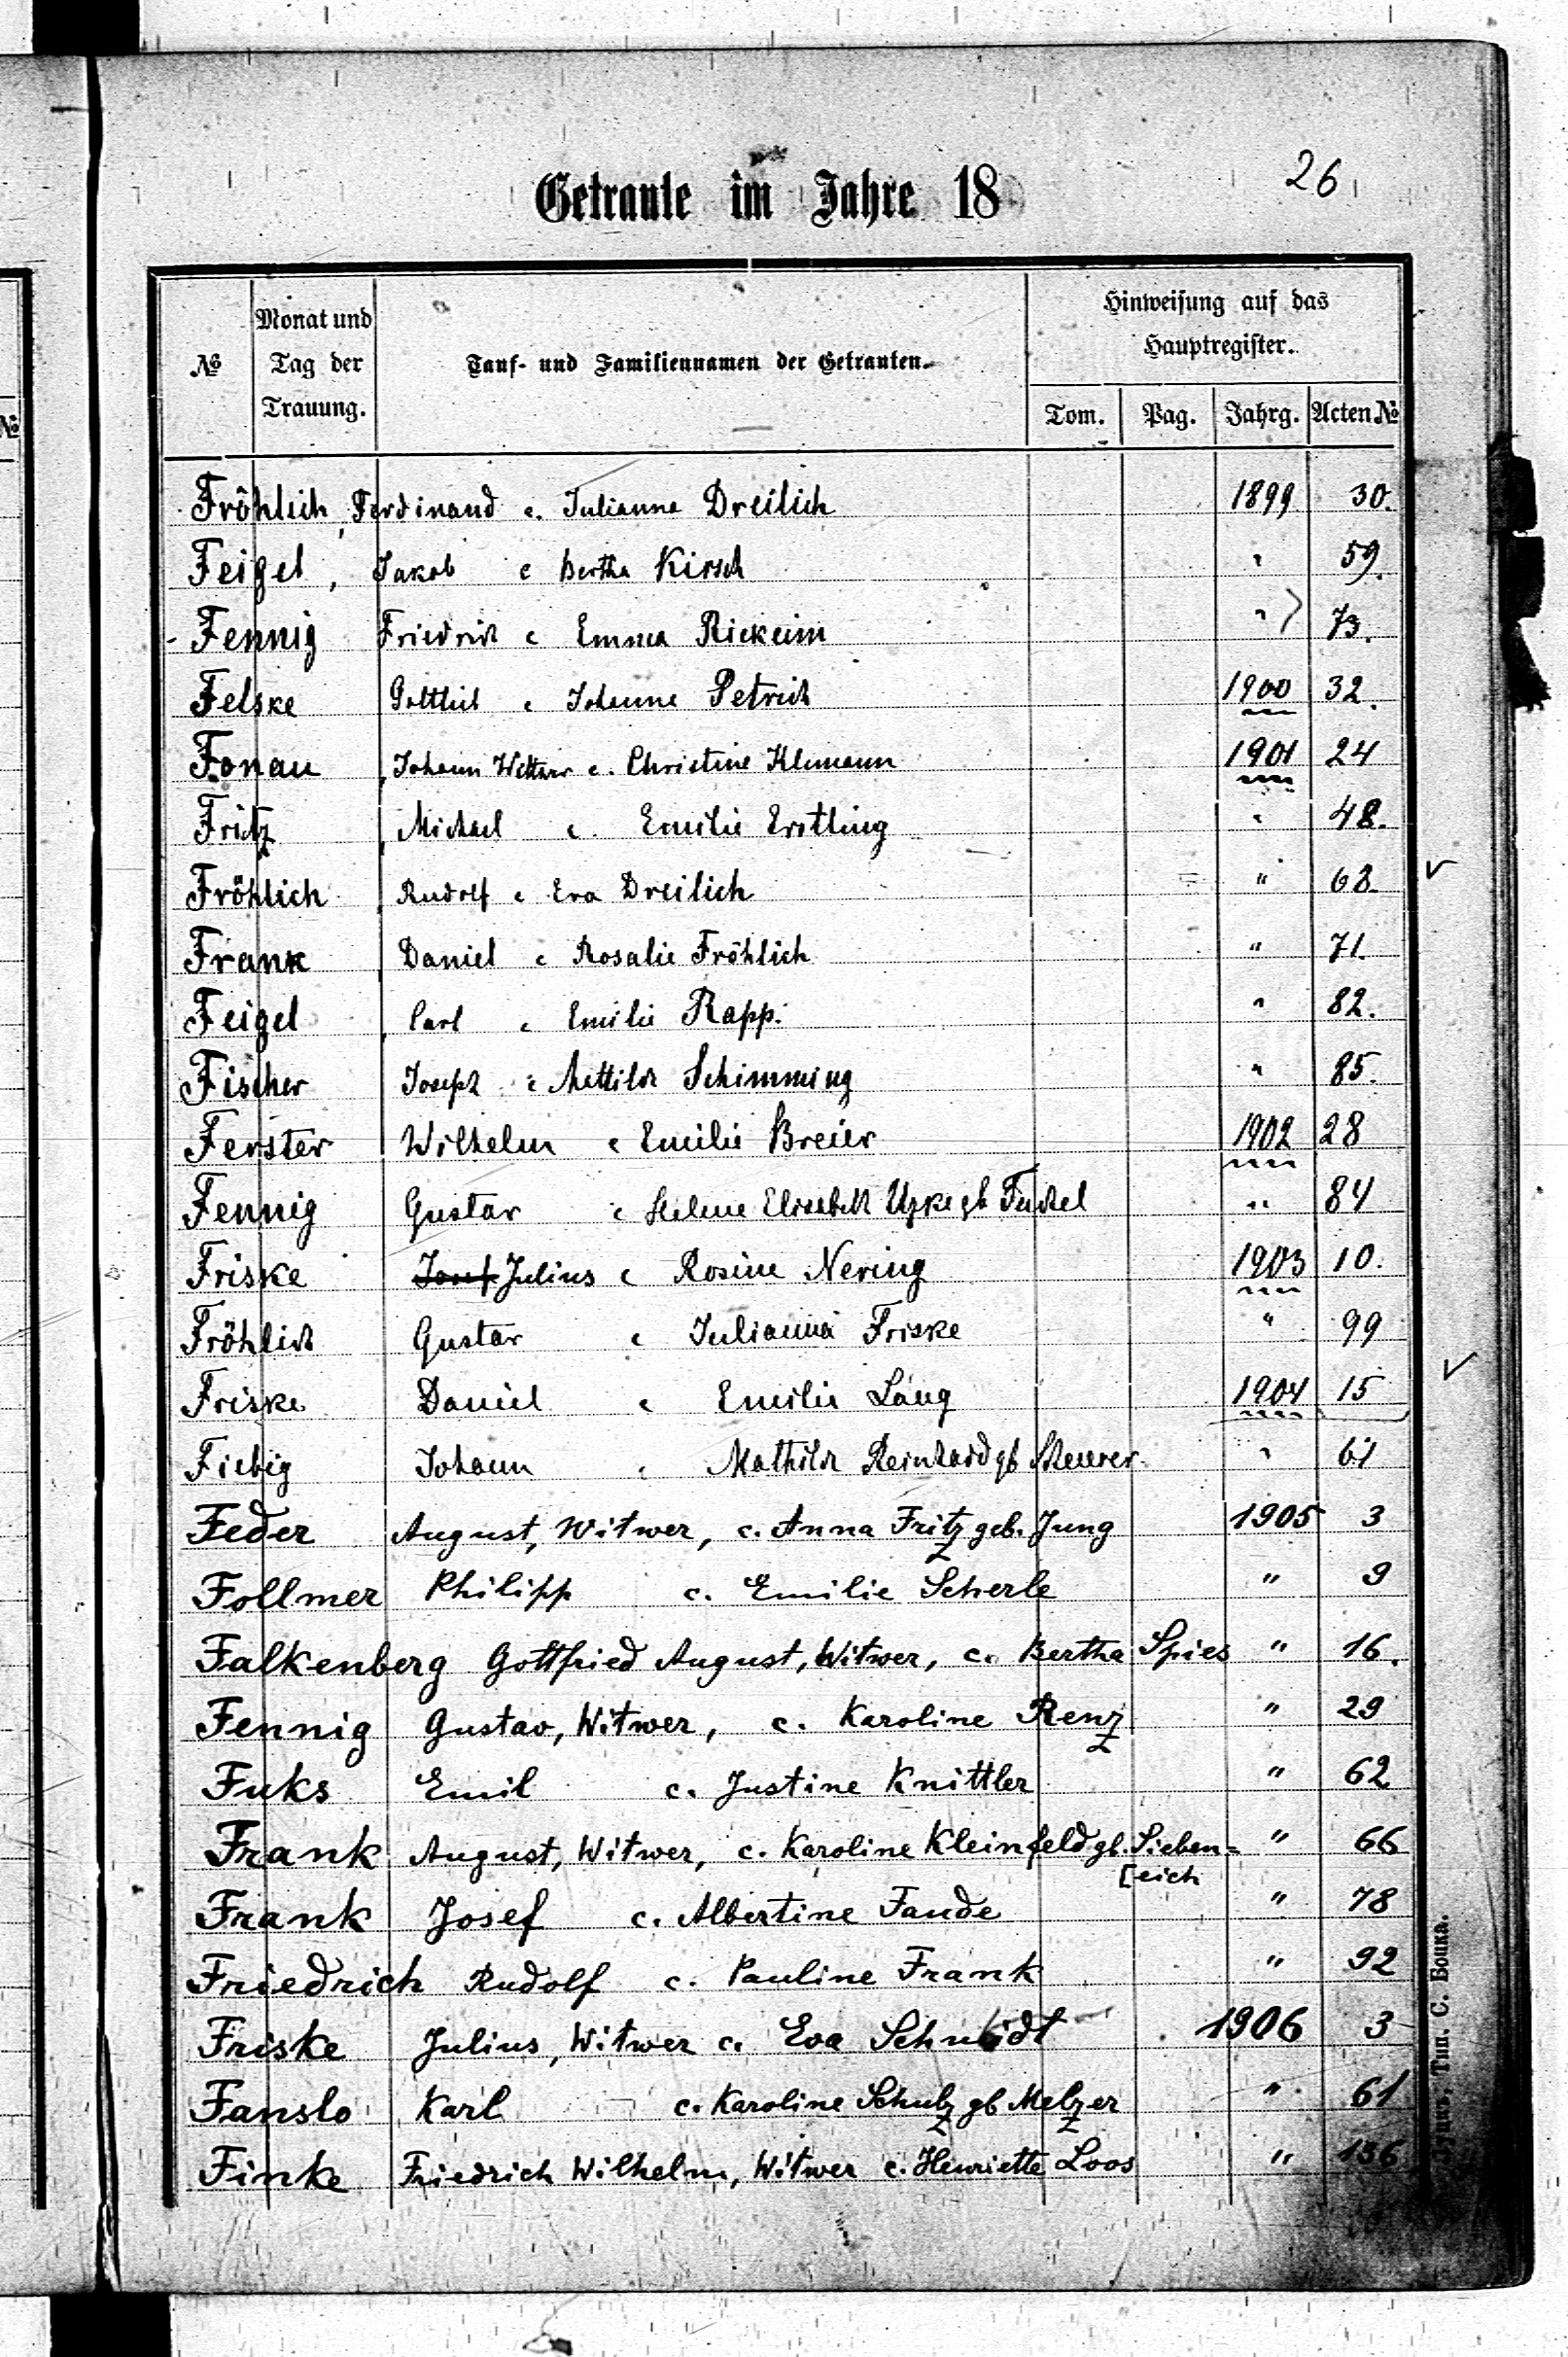 26
Getraute im Jahre 18
№
Monat und
Tag der
Trauung.
Tauf- und Familiennamen der Getrauten.
Hinweisung auf das
Hauptregister.
Tom. Pag. Jahrg. Acten №
№
Fröhlich, Ferdinand c. Julianna Dreilich 1899 30.
Feigel, Jakob c Bertha Kirsch " 59.
Fennig Friedrich c Emma Riekeim " 73.
Felske Gottlieb c Johanne Petrich 1900 32.
Fonau Johann Wittwer c. Christine Klemann 1901 24
Fritz Michael c. Emilie Erstling " 48.
Fröhlich Rudolf c Eva Dreilich " 68.
Frank Daniel c Rosalie Fröhlich " 71.
Feigel Carl c Emilie Rapp. " 82.
Fischer Joseph c Mathilde Schimming " 85.
Ferster Wilhelm c Emilie Breier 1902 28
Fennig Gustav c Helene Elisabeth gb " 84
Friske Josef Julius c Rosine Nering 1903 10.
Fröhlich Gustav c Julianna Friske " 99
Friske Daniel c Emilie Lang 1904 15
Fiebig Johann c Mathilde Reinhard gb Scheurer " 61
Feder August, Witwer, c. Anna Fritz geb. Jung 1905 3
Follmer Philipp c. Emilie Scherle " 9
Falkenberg Gottfried August, Witwer, c. Bertha Spies " 16.
Fennig Gustav, Witwer, c. Karoline Renz " 29
Fuks Emil c. Justine Knittler " 62
Frank August, Witwer, c. Karoline Kleinfeld gb. Sieben= " 66
[eich
Frank Josef c. Albertine Faude " 78
Friedrich Rudolf c. Pauline Frank " 92
Friske Julius, Witwer c. Eva Schmidt 1906 3
Fanslo Karl c. Karoline Schulz gb Melzer " 61
Finke Friedrich Wilhelm, Witwer c. Henriette Loos " 136
Тип. С. Бойка.